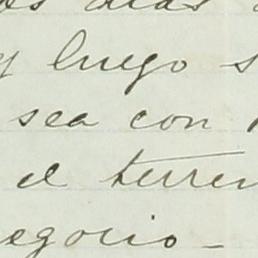 os dias
y luego s
sea con
el terren
egocio -